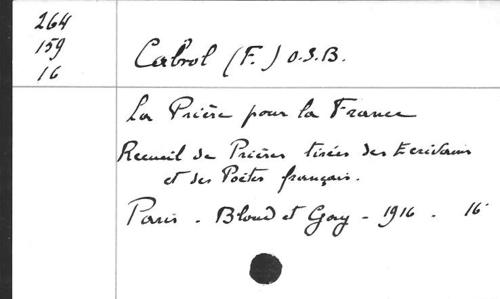 264
159
16
Cabrol (F.) O.S.B.
La Prière pour la France
Recueil de Prières tirées des Ecrivains
et des Poètes français.
Paris - Bloud et Gay - 1916 - 16°